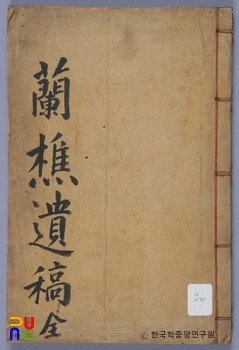 蘭樵遺稿 全
PUN
© 한국학중앙연구원